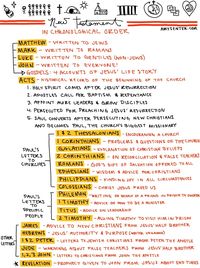 AMYSENTER.COM
New Testament
IN CHRONOLOGICAL ORDER
MATTHEW - WRITTEN TO JEWS
MARK - WRITTEN TO ROMANS
LUKE - WRITTEN TO GENTILES (NON-JEWS)
JOHN - WRITTEN TO EVERYONE!
GOSPELS: 4 ACCOUNTS OF JESUS' LIFE STORY
ACTS - HISTORICAL RECORD OF THE BEGINNING OF THE CHURCH
1. HOLY SPIRIT COMES AFTER JESUS' RESURRECTION
2. APOSTLES CALL FOR BAPTISM & REPENTANCE
3. APPOINT MORE LEADERS & GROW DISCIPLES
4. PERSECUTED FOR PREACHING JESUS' RESURRECTION
5. SAUL CONVERTS AFTER PERSECUTING NEW CHRISTIANS
AND BECOMES PAUL, THE CHURCH'S BIGGEST MISSIONARY
PAUL'S LETTERS TO CHURCHES
1 & 2 THESSALONIANS - ENCOURAGING A CHURCH
1 CORINTHIANS - PROBLEMS & QUESTIONS OF THE CHURCH
GALATIANS - EXPLANATION OF CHRISTIAN BELIEFS
2 CORINTHIANS - ON RECONCILIATION & FALSE TEACHERS
ROMANS - GOD'S GIFT OF SALVATION OFFERED TO ALL
EPHESIANS - WISDOM & ADVICE FOR CHRISTIANS
PHILIPPIANS - FINDING JOY IN ALL CIRCUMSTANCES
COLOSSIANS - CHRIST JESUS FREED US
PAUL'S LETTERS TO SPECIFIC PEOPLE
PHILEMON
1 TIMOTHY - ADVICE ON HOW TO BE A MINISTER
TITUS - ADVICE ON LEADERSHIP
2 TIMOTHY - ASKING TIMOTHY TO VISIT HIM IN PRISON
OTHER LETTERS
JAMES - ADVICE TO NEW CHRISTIANS FROM JESUS' HALF BROTHER
HEBREWS - JESUS' AUTHORITY & PURPOSE
1 & 2 PETER - LETTERS TO JEWISH CHRISTIANS FROM PETER THE APOSTLE
JUDE - WARNING ABOUT FALSE TEACHERS FROM JESUS' HALF BROTHER
1, 2, 3 JOHN - LETTERS TO CHRISTIANS FROM JOHN THE APOSTLE
REVELATION - PROPHECY GIVEN TO JOHN FROM JESUS ABOUT END TIMES